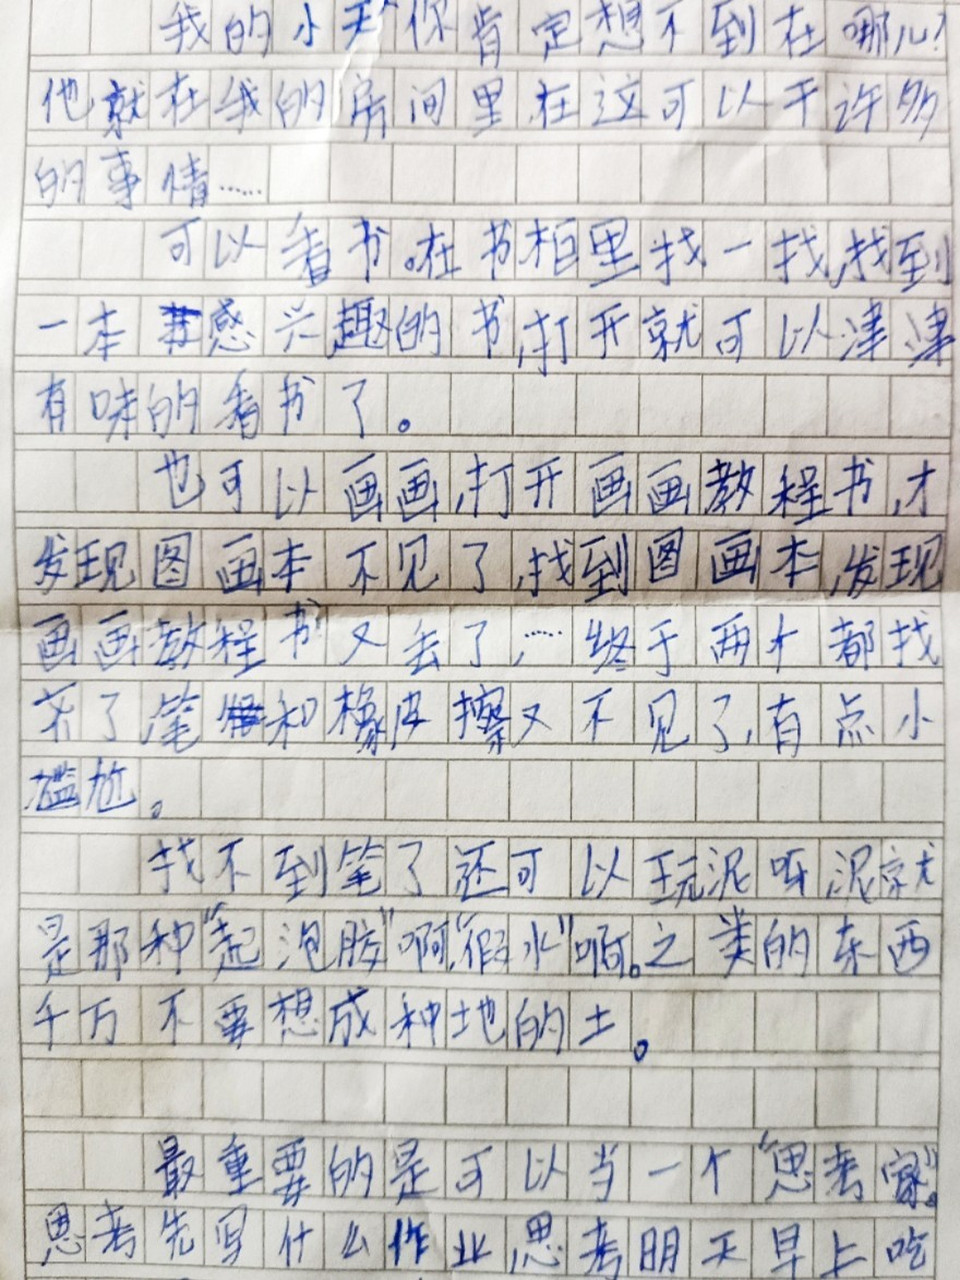 我的小天"你肯定想不到在哪儿!
他就在我的房间里在这可以干许多
的事情……
可以看书。在书柜里找一找,找到
一本感兴趣的书,打开就可以津津
有味的看书了。
也可以画画,打开画画教程书,才
发现图画本不见了,找到图画本,发现
画画教程书又去了,……终于两个都找
齐了笔和橡皮擦又不见了,有点小
尴尬。
找不到笔了还可以玩泥呀泥就
是那种"起泡胶"啊,"假水"啊。之类的东西
千万不要想成种地的土。
最重要的是可以当一个"思考家"。
思考先写什么作业思考明天早上吃